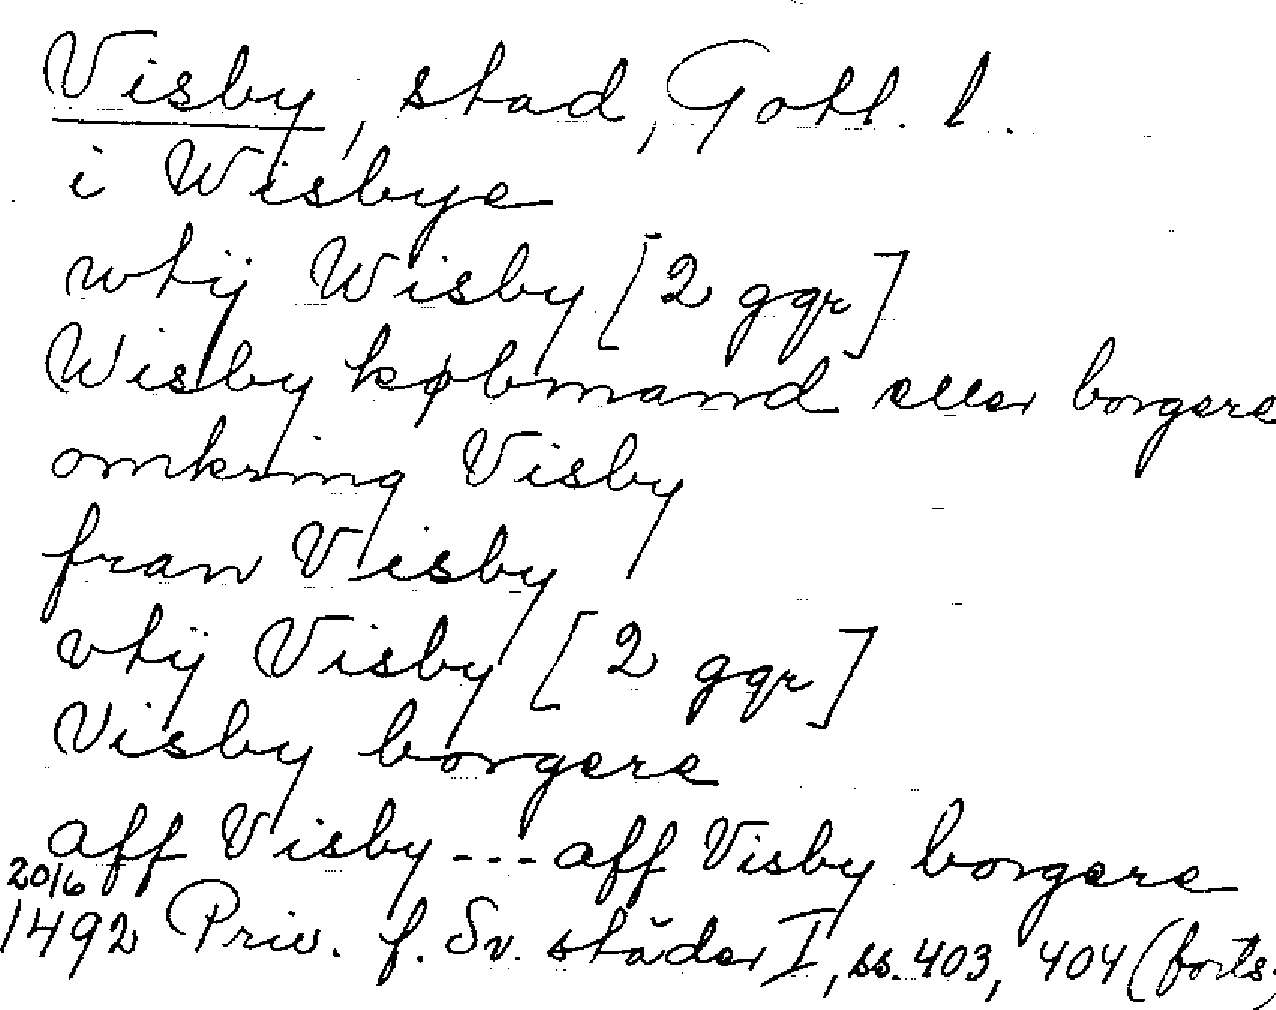 Visby, stad, Gotl. l.
i Wisbye
wtij Wisby [2 ggr]
Wisby købmand eller borgere
omkring Visby
fran Visby
vtij Visby [2 ggr]
Visby borgere
aff Visby --- aff Visby borgere
20/6
1492 Priv. f. Sv. städer I, ss. 403, 404 (forts.